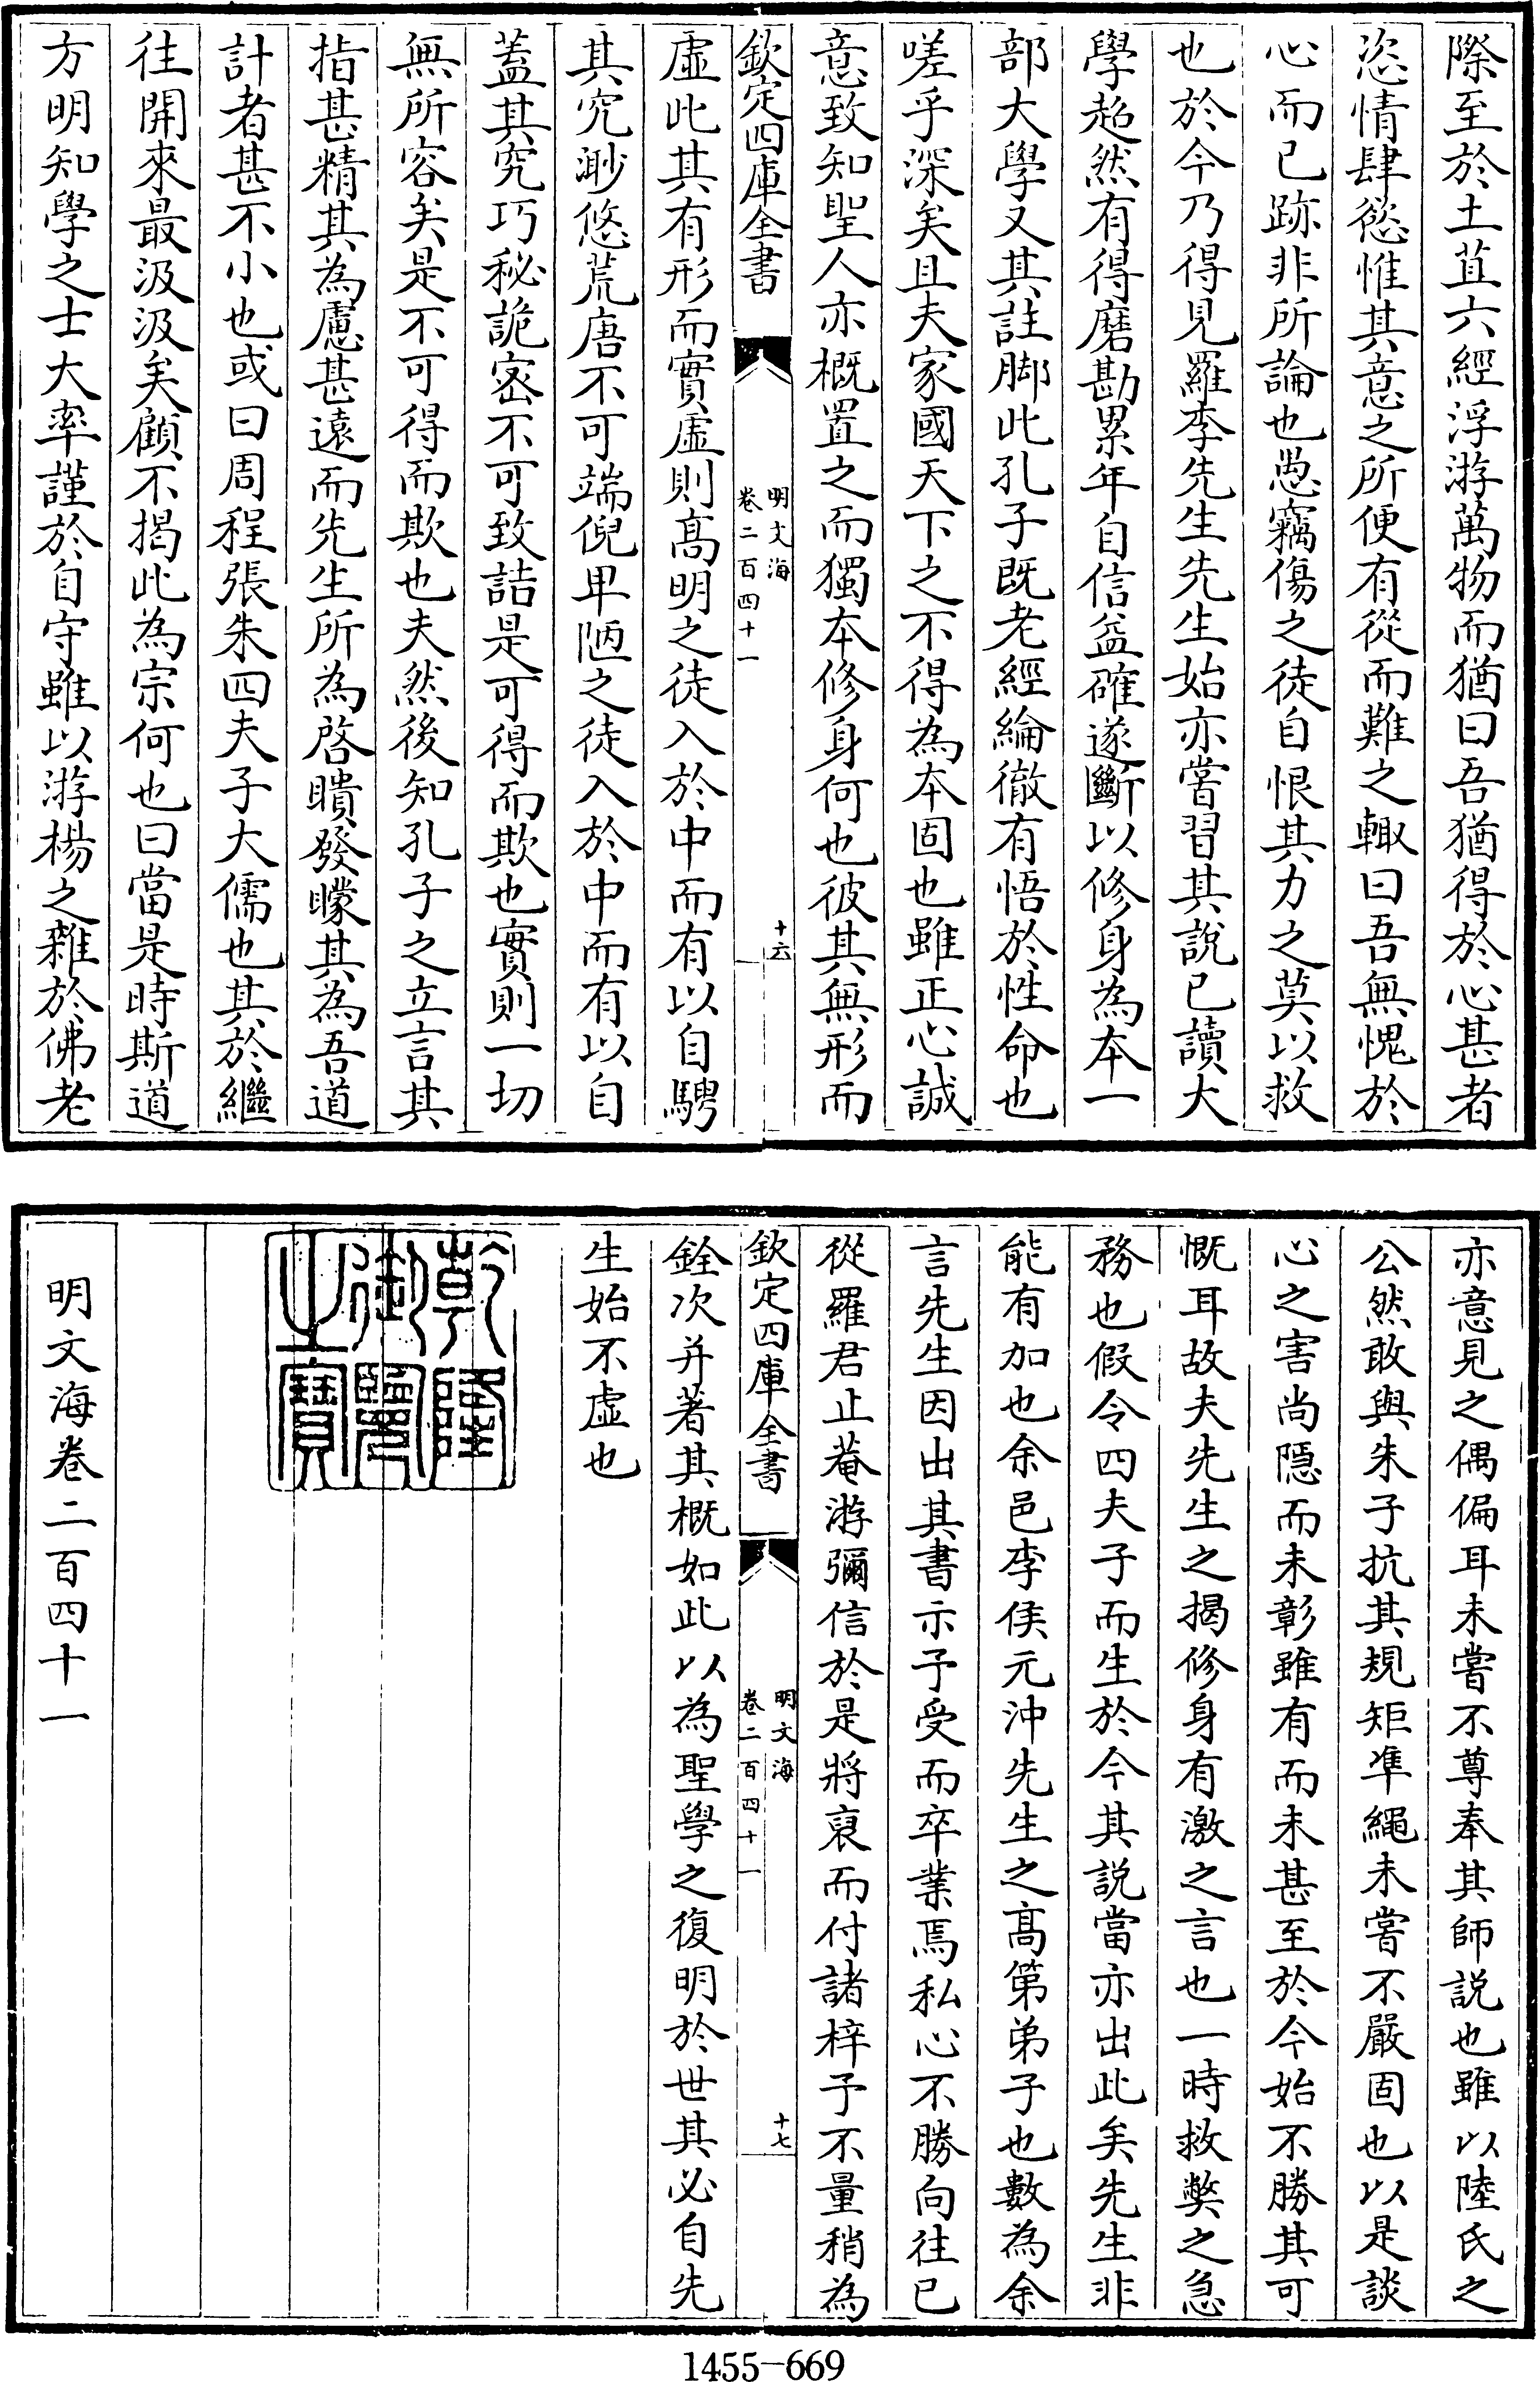 際至於土苴六經浮游萬物而猶曰吾猶得於心甚者
恣情肆慾惟其意之所便有從而難之輙曰吾無愧於
心而已跡非所論也愚竊傷之徒自恨其力之莫以救
也於今乃得見羅李先生先生始亦嘗習其說已讀大
學超然有得磨勘累年自信益確遂斷以修身為本一
部大學又其註脚此孔子既老經綸徹有悟於性命也
嗟乎深矣且夫家國天下之不得為本固也雖正心誠
意致知聖人亦概置之而獨本修身何也彼其無形而
欽定四庫全書
明文海
卷二百四十一
十六
虛此其有形而實虛則髙明之徒入於中而有以自騁
其究渺悠荒唐不可端倪卑陋之徒入於中而有以自
蓋其究巧秘詭宻不可致詰是可得而欺也實則一切
無所容矣是不可得而欺也夫然後知孔子之立言其
指甚精其為慮甚遠而先生所為啓瞶發矇其為吾道
計者甚不小也或曰周程張朱四夫子大儒也其於繼
往開來最汲汲矣顧不揭此為宗何也曰當是時斯道
方明知學之士大率謹於自守雖以游楊之雜於佛老
亦意見之偶偏耳未嘗不尊奉其師説也雖以陸氏之
公然敢與朱子抗其規矩凖繩未嘗不嚴固也以是談
心之害尚隱而未彰雖有而未甚至於今始不勝其可
慨耳故夫先生之揭修身有激之言也一時救獘之急
務也假令四夫子而生於今其説當亦出此矣先生非
能有加也余邑李侯元沖先生之髙第弟子也數為余
言先生因出其書示予受而卒業焉私心不勝向往已
從羅君止菴游彌信於是將裒而付諸梓予不量稍為
欽定四庫全書
明文海
卷二百四十一
十七
銓次并著其概如此以為聖學之復明於世其必自先
生始不虛也
乾隆御覽之寶
明文海卷二百四十一
1455-669